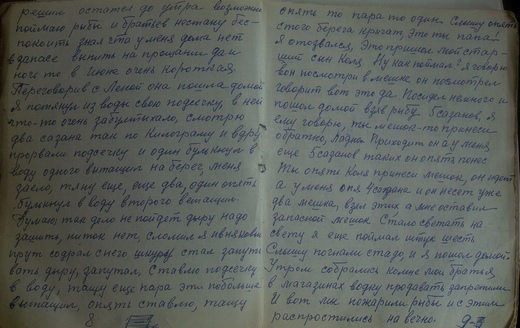 решил остатся до утра возможно
поймаю рыбы и братьев не стану бес-
покоить зная что у меня дома нет
в запасе выпить на прощании да и
ночи то в Июне очень короткая.
Переговорив с Леной она пошла домой
Я потянул из воды свою подсечку, в ней
что-то очень забултыхало, смотрю
два сазана так по килограму и вдруг
прорвали подсечку и один булькнул в
воду одного вытащил на берег, меня
заело, тяну еще, еще два, один опять
булькнул в воду второго вытащил.
Думаю, так дело не пойдет дыру надо
зашить, ниток нет, сломил я ивняковый
прут содрал с него шкуру стал запуты
вать дыру, запутал. Ставлю подсечку
в воду, тащу еще пара эти побольше
вытащил, опять ставлю, тащу
8
опять то пара то один. Слышу опять
с того берега кричат, Это ты папа!
Я отозвался, Это пришол мой стар-
ший син Коля. Ну как поймал? Я говорю
вон посмотри в мешке он посмотрел
говорит вот это да Посидел немного и
пошол домой взяв рыбу 5 сазанов, я
ему говорю, ты мешок-то принеси
обратно, ладно. Приходит он а у меня
еще 5 сазанов таких он опять понес
Ты опять Коля принеси мешок, он идет
а у меня опя и он несет уже
два мешка, взял этих а мне оставил
запасной мешок. Стало светать на
свету я еще поймал штук шесть
Слышу погнали стадо, и я пошол домой
Утром собрались ко мне мои братья,
в магазинах водку продавать запретили
И вот мы пожарили рыбы и с этим
распростились на вечно.